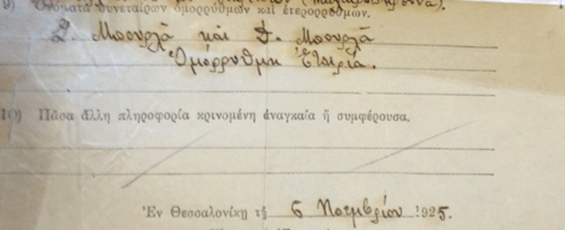 9) Ὀνόματα συνεταίρων ὁμορρύθμων καὶ ἑτερορρύθμων.
Μπουρλᾶ καὶ Μπουρλᾶ
Ὁμόρρυθμη Ἑταιρία.
10) Πᾶσα ἄλλη πληροφορία κρινομένη ἀναγκαία ἢ συμφέρουσα.
Ἐν Θεσσαλονίκῃ τῇ 6 Νοεμβρίου 1925.